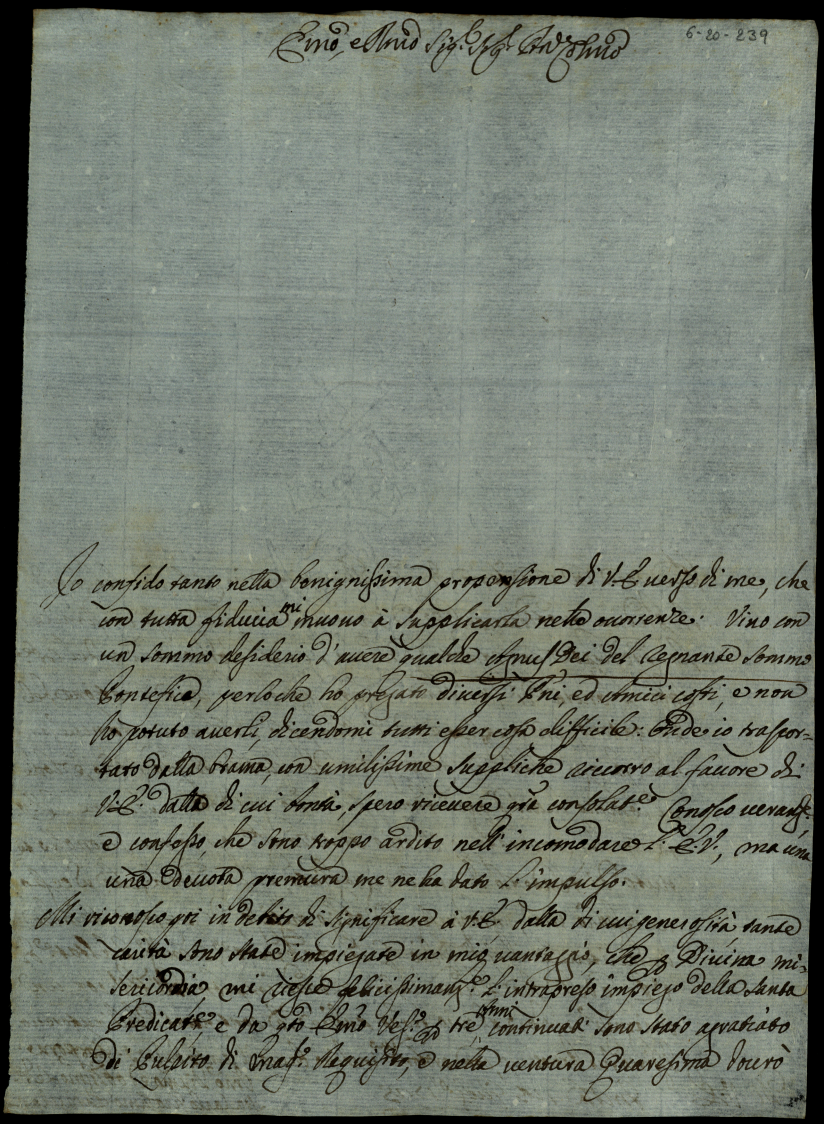 Emo, e Rmo Sig.r Sig.r Prōn Colmo
6-20-239
Io confido tanto nella benignissima propensione di V.E verso di me, che
con tutta fiducia mi muovo à supplicarla nelle ocorrenze. Vivo con
un sommo desiderio d'avere qualche Agnus Dei del regnante sommo
Pontefice, perloche ho pregato diversi Pñi, ed Amici costi, e non
ho potuto averli, dicendomi tutti esser cosa difficile: Onde io traspor-
tato dalla brama, con umilissime suppliche ricorro al favore di
V.E. dalla di cui bontà, spero ricevere gra consolat.e Conosco veramte.
e confesso, che sono troppo ardito nell'incomodare l'E.V., ma una
una devota premura me ne ha dato l'impulso.
Mi riconosco poi in debito di significare à V.E. dalla di cui generosità tante
carità sono state impiegate in mio vantaggio, che p Divina mi-
sericordia mi riesce felicissimamte. l'intrapreso impiego della Santa
Predicat.e e da qto Emo Vesc.o p tre anni continuati sono stato agratiato
di Pulpito di Requisito, e nella ventura Quaresima dovrò